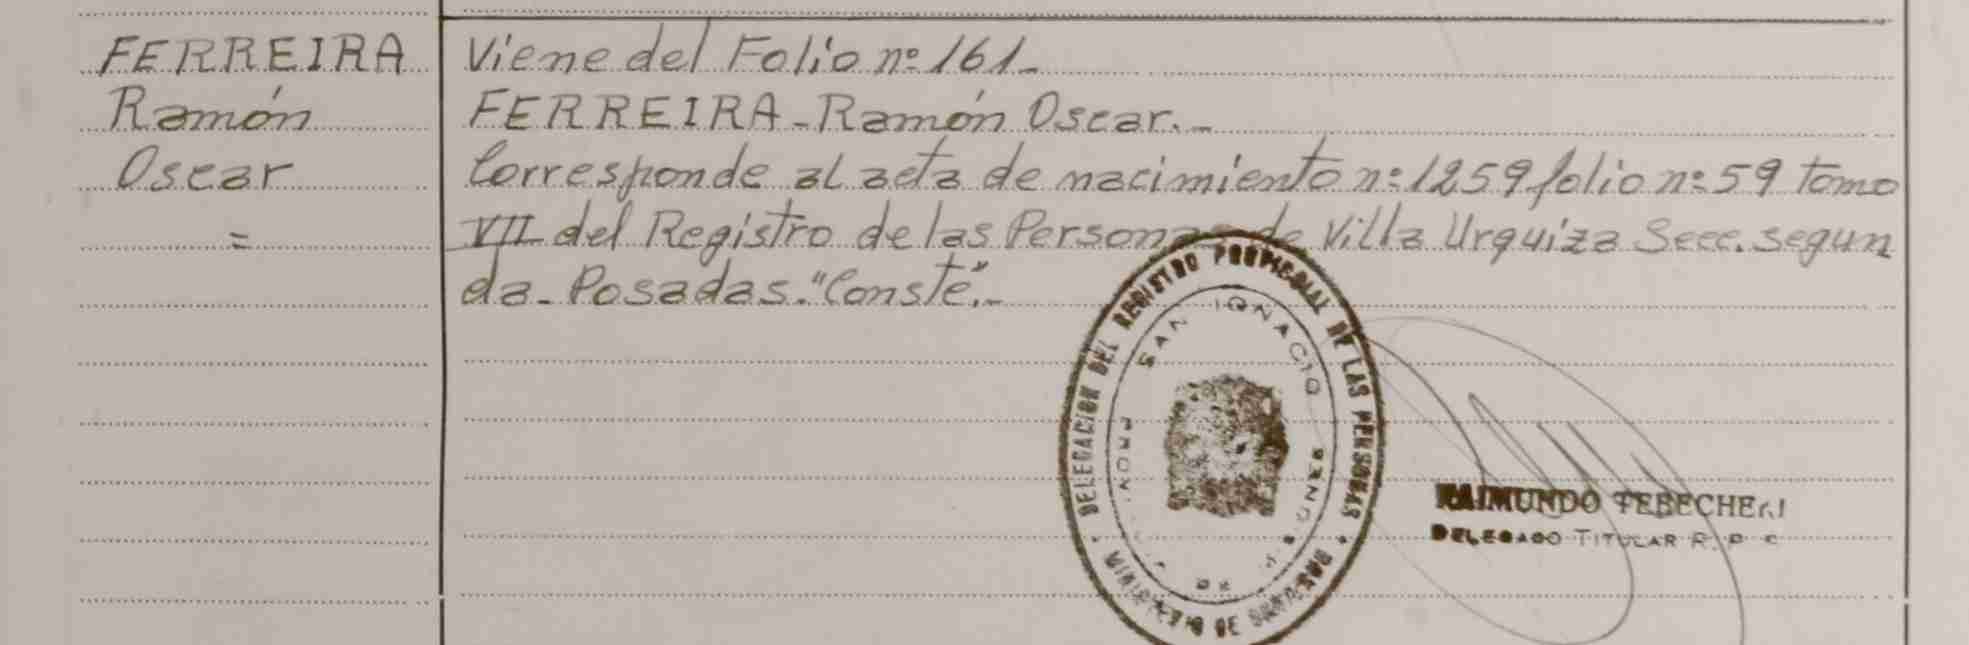 FERREIRA
Ramón
Oscar
=
Viene del Folio nº 161.-
FERREIRA - Ramón Oscar. -
Corresponde al acta de nacimiento nº 1259 folio nº 59 tomo
VII del Registro de las Personas de Villa Urquiza Secc. segun
da - Posadas. "Conste".-
DELEGACION DEL REGISTRO PROVINCIAL DE LAS PERSONAS
MINISTERIO DE GOBIERNO
SAN IGNACIO
PROV. DE
RAIMUNDO
DELEGADO TITULAR R. P.